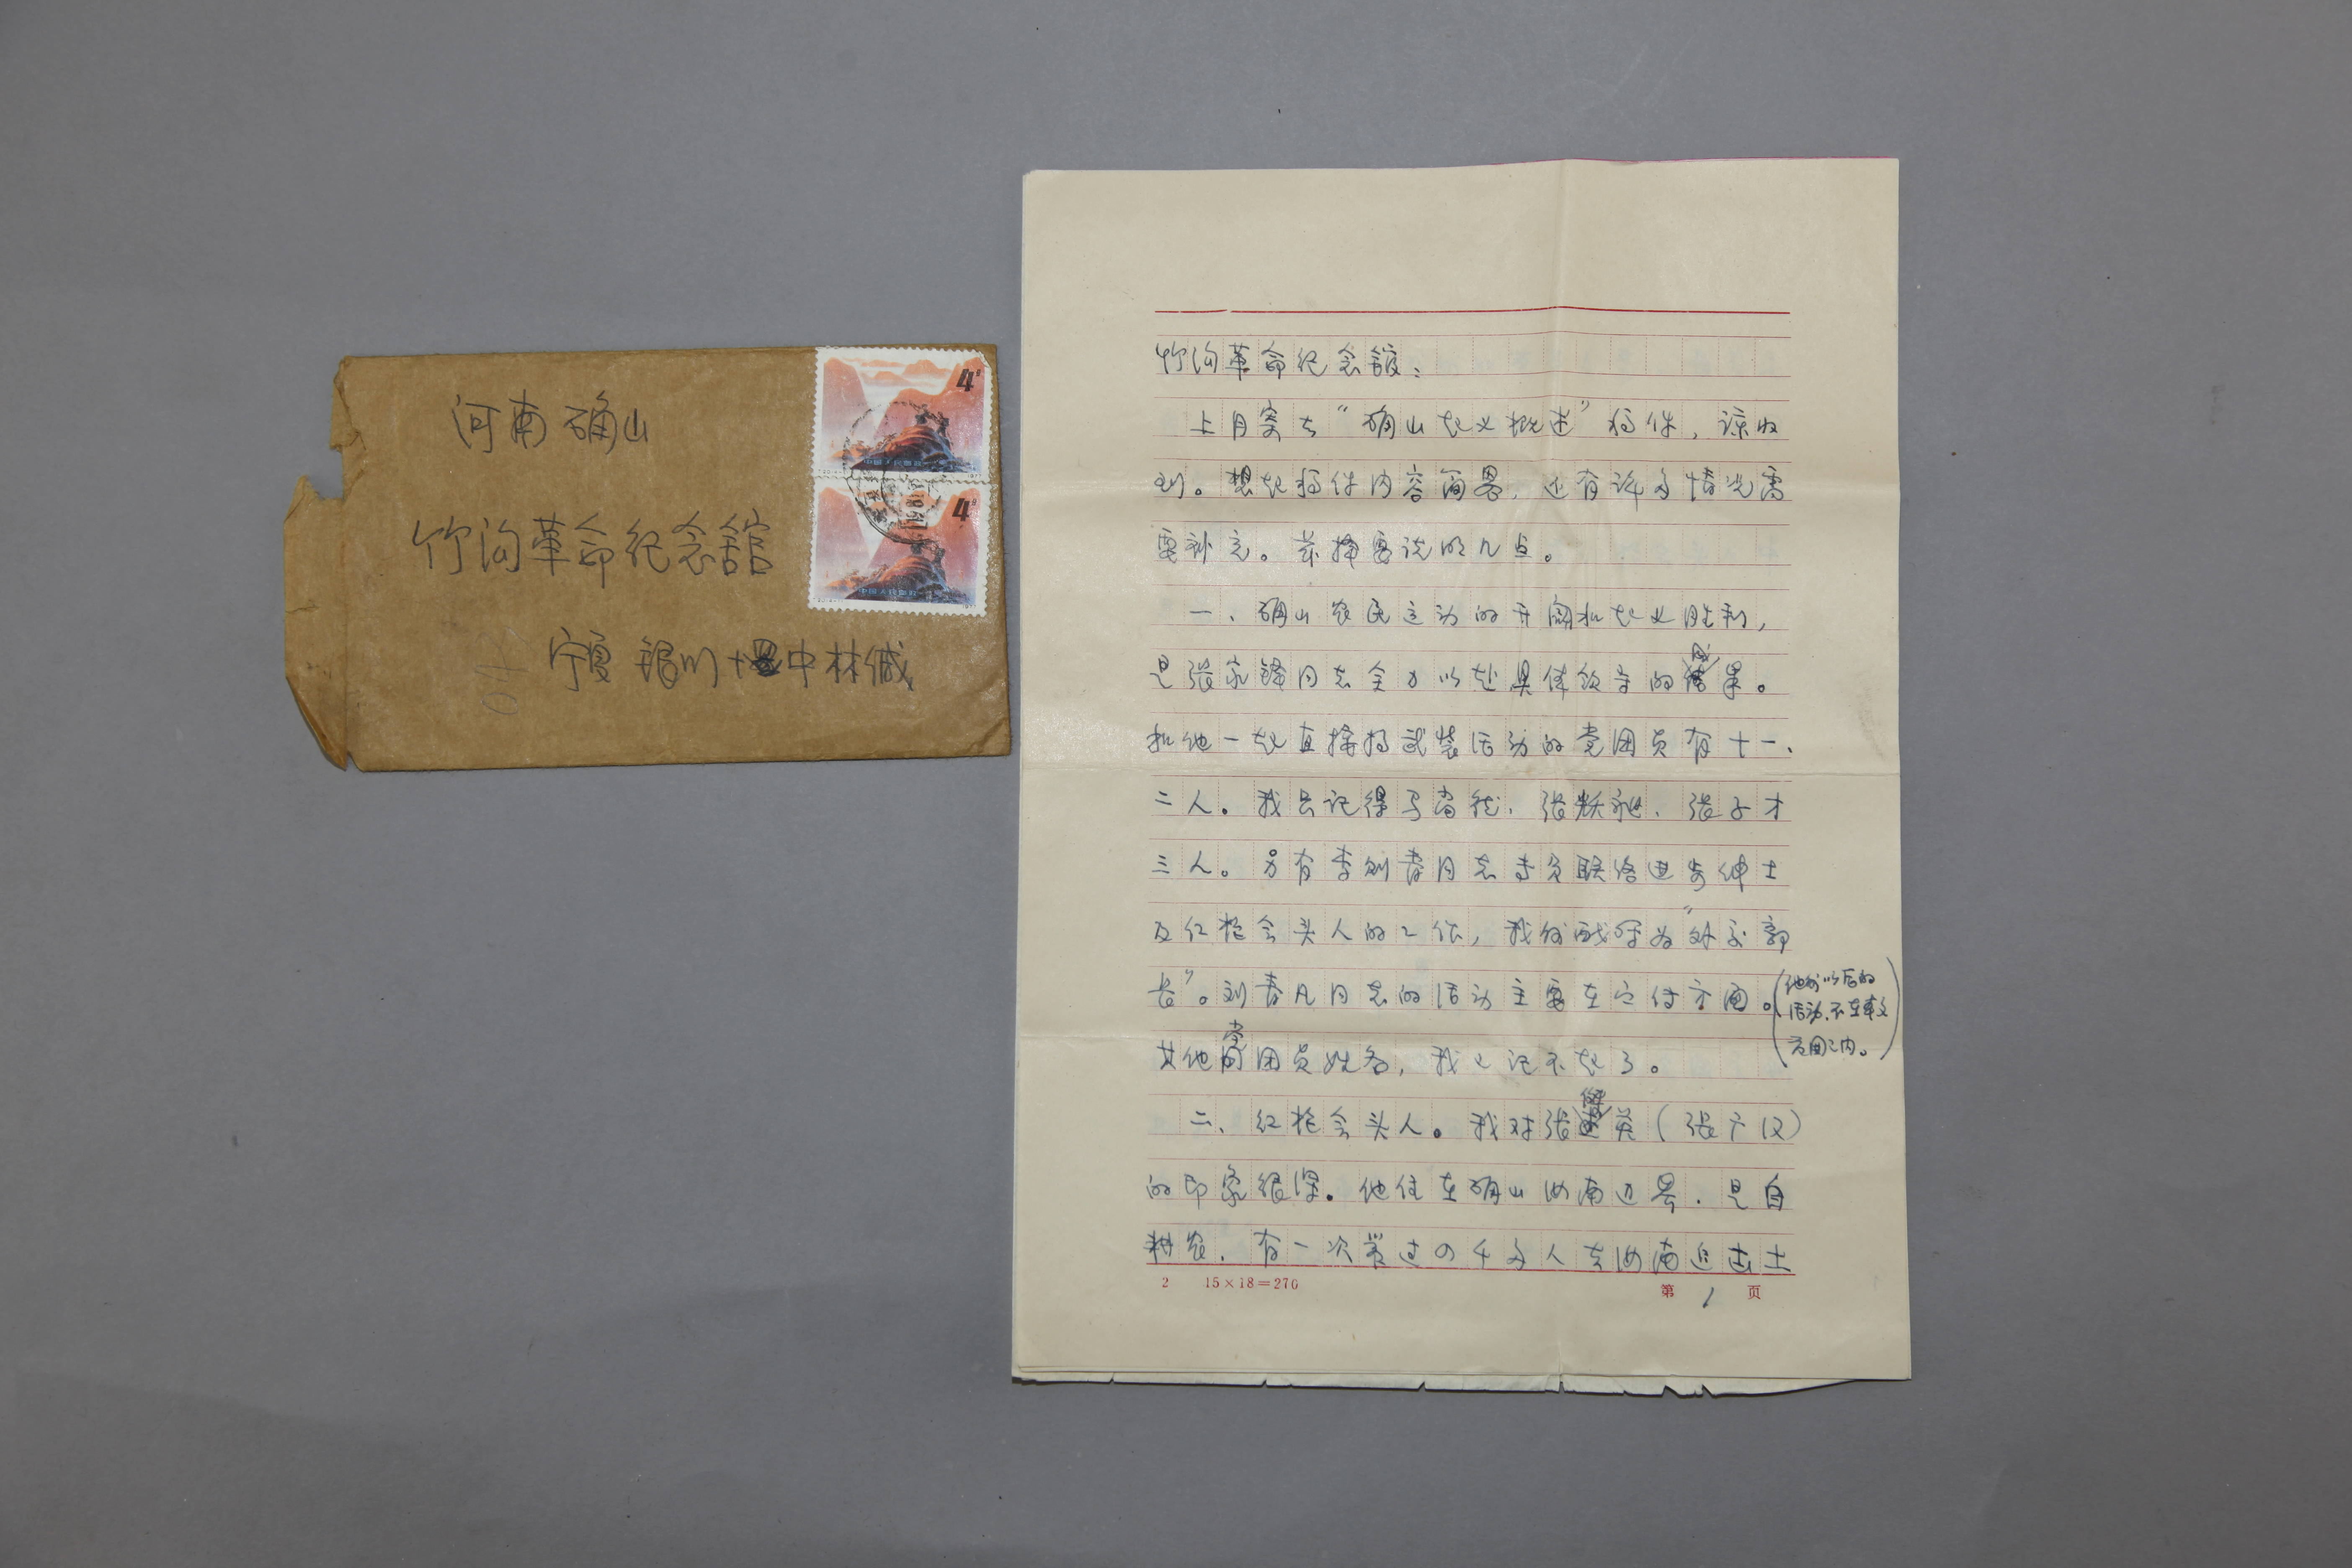 河南确山
竹沟革命纪念舘
宁夏银川 中林缄
4
中国人民邮政
4
中国人民邮政
竹沟革命纪念舘：
上月寄去“确山起义概述”稿件，谅收
到。想起稿件内容简畧，还有许多情况需
要补充。兹择要说明几点。
一、确山农民运动的开闢和起义胜利，
是张家铎同志全力以赴具体领导的成果。
和他一起直接搞武装活动的党团员有十一、
二人。我只记得马尚德、张耀昶、张子才
三人。另有李则青同志专负联络进步绅士
及红枪会头人的工作，我们戏呼为“外交部
长”。刘青凡同志的活动主要在宣传方面。
（他们以后的
活动，不在本文
范围之内。）
其他党团员姓名，我也记不起了。
二、红枪会头人。我对张 英（张广汉）
的印象很深。他住在确山汝南边界，是自
耕农，有一次带过四千多人去汝南追击土
2 15×18=270
第 1 页